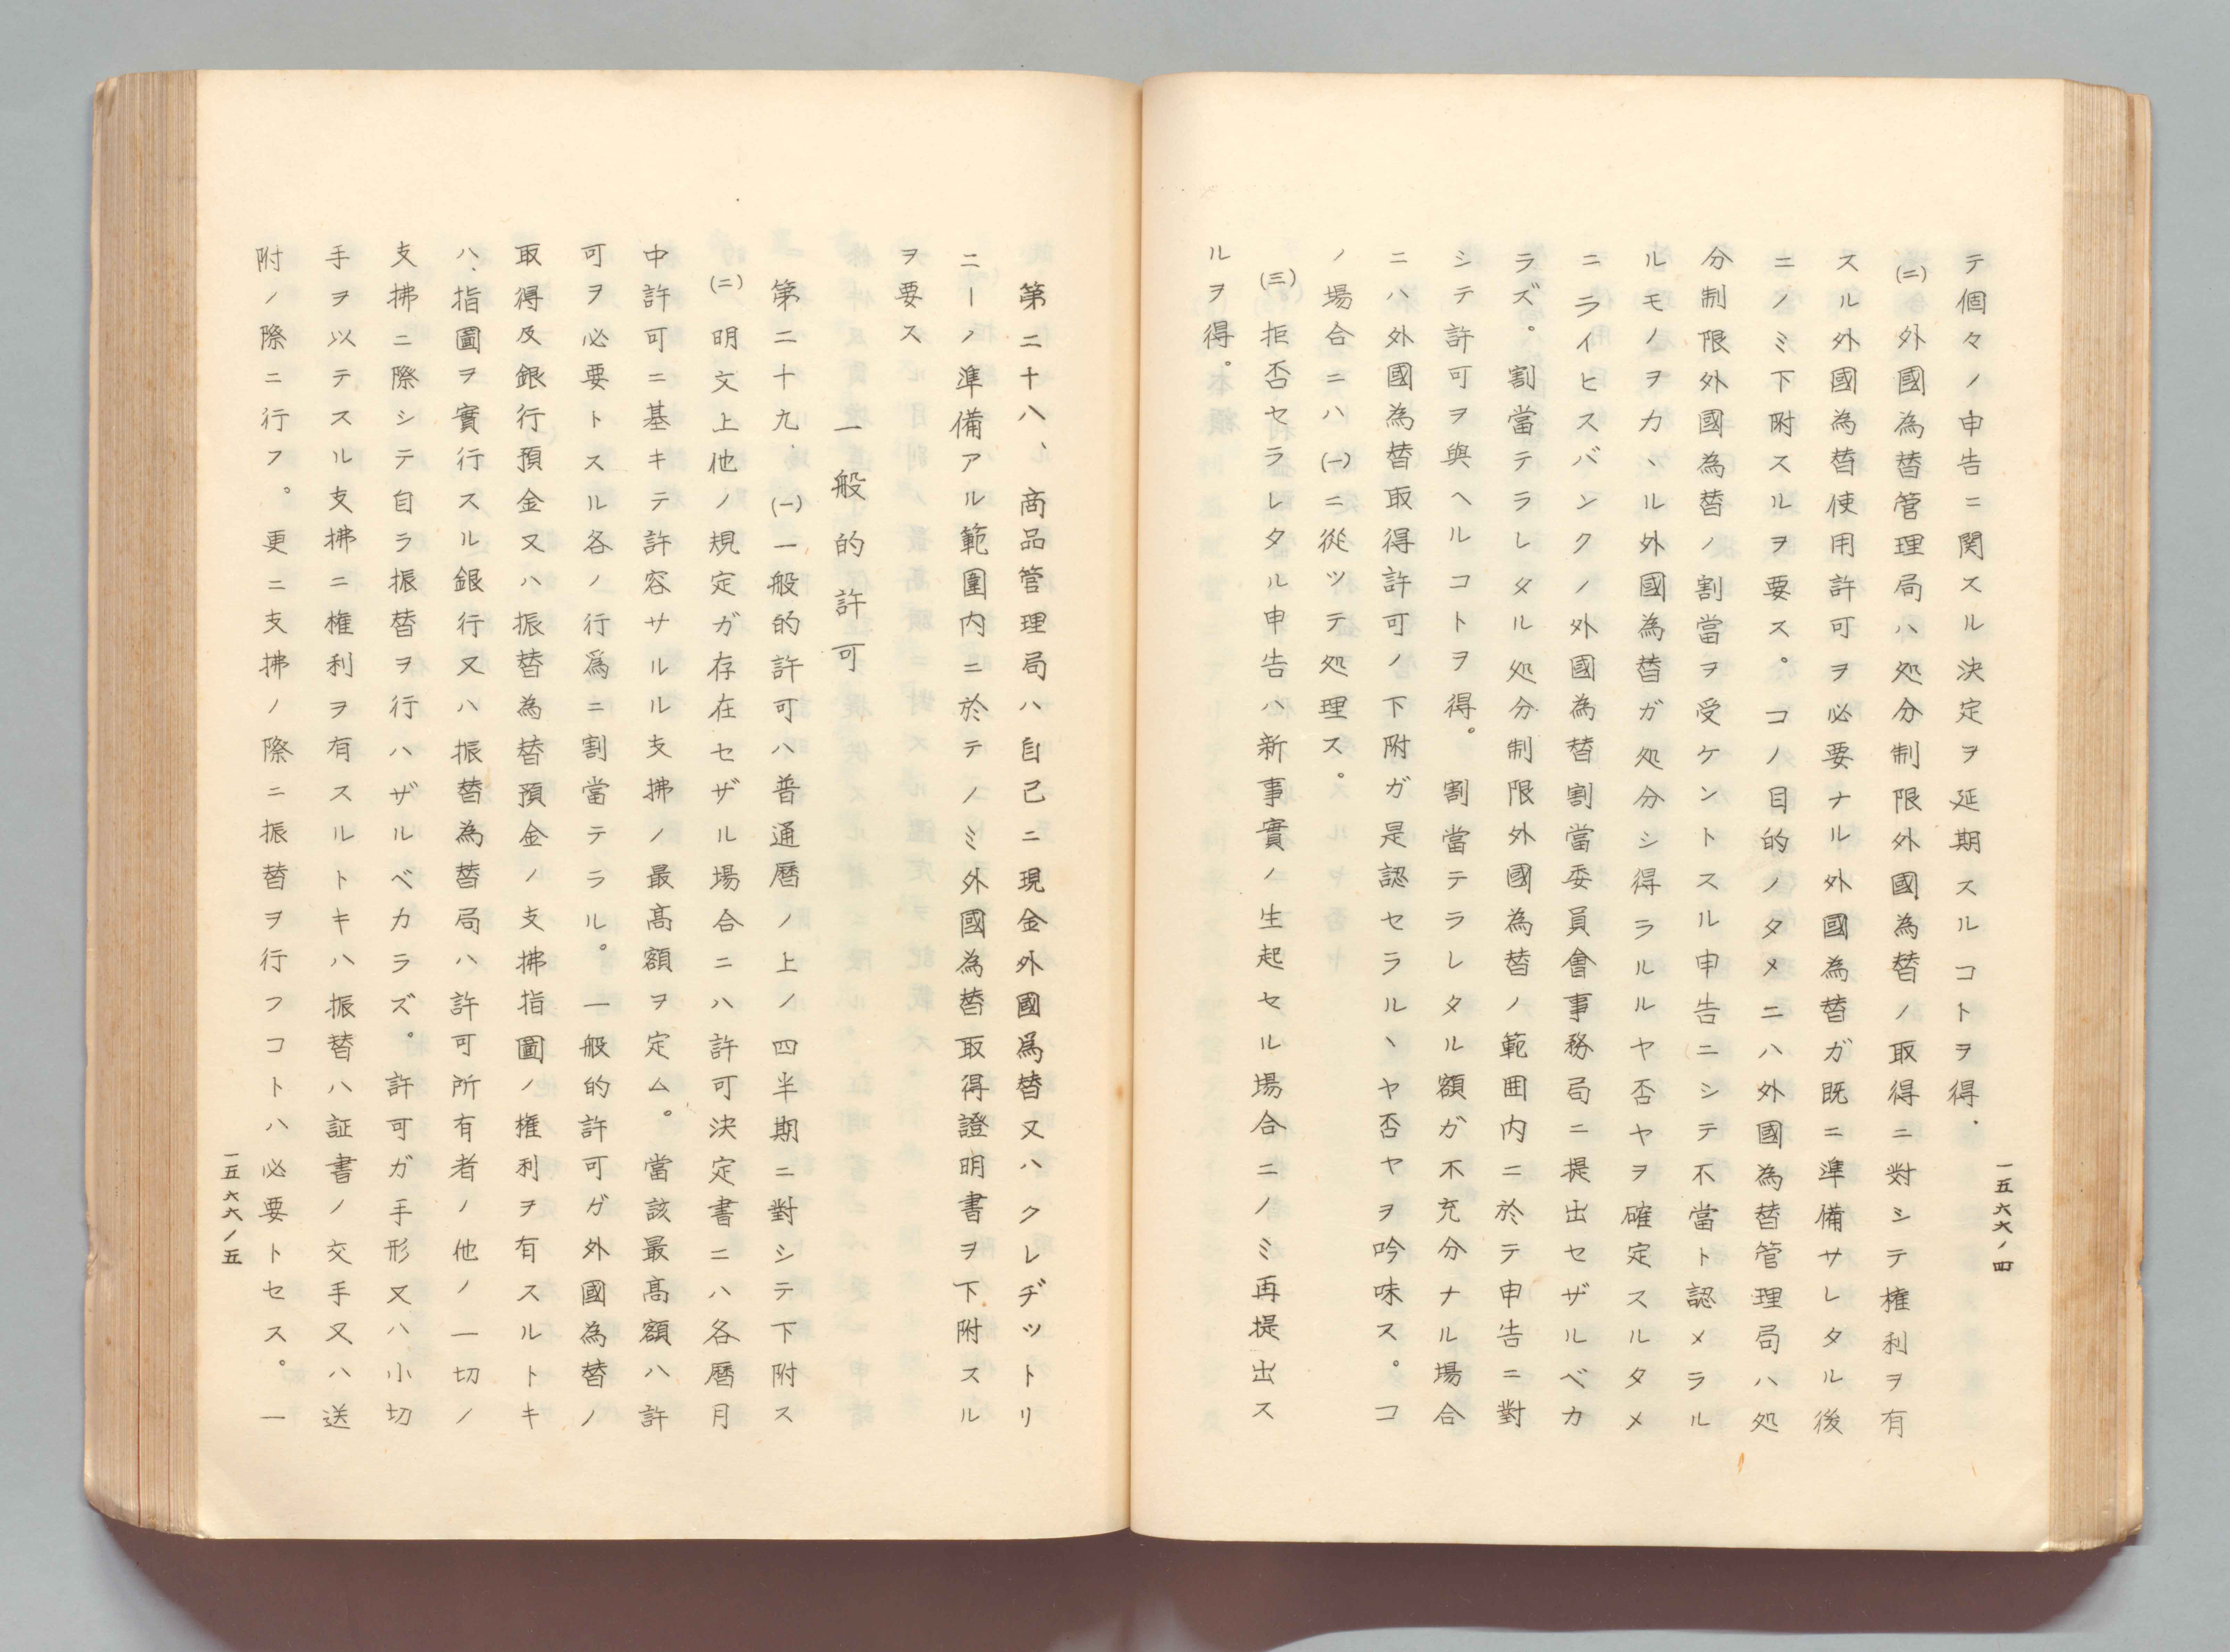 テ個々ノ申告ニ関スル決定ヲ延期スルコトヲ得.
(二)外國為替管理局ハ処分制限外國為替ノ取得ニ對シテ権利ヲ有
スル外國為替使用許可ヲ必要ナル外國為替ガ既ニ準備サレタル後
ニノミ下附スルヲ要ス。コノ目的ノタメニハ外國為替管理局ハ処
分制限外國為替ノ割當ヲ受ケントスル申告ニシテ不當ト認メラル
ルモノヲカヽル外國為替ガ処分シ得ラルルヤ否ヤヲ確定スルタメ
ニライヒスバンクノ外國為替割當委員會事務局ニ提出セザルベカ
ラズ。割當テラレタル処分制限外國為替ノ範囲内ニ於テ申告ニ對
シテ許可ヲ與ヘルコトヲ得。割當テラレタル額ガ不充分ナル場合
ニハ外國為替取得許可ノ下附ガ是認セラルヽヤ否ヤヲ吟味ス。コ
ノ場合ニハ(一)ニ從ツテ処理ス。
(三)拒否セラレタル申告ハ新事實ノ生起セル場合ニノミ再提出ス
ルヲ得。
一五六六ノ四
第二十八、商品管理局ハ自己ニ現金外國爲替又ハクレヂツトリ
ニーノ準備アル範圍内ニ於テノミ外國為替取得證明書ヲ下附スル
ヲ要ス
一般的許可
第二十九、(一)一般的許可ハ普通暦ノ上ノ四半期ニ對シテ下附ス
(二)明文上他ノ規定ガ存在セザル場合ニハ許可決定書ニハ各暦月
中許可ニ基キテ許容サルル支拂ノ最高額ヲ定ム。當該最高額ハ許
可ヲ必要トスル各ノ行爲ニ割當テラル。一般的許可ガ外國為替ノ
取得及銀行預金又ハ振替為替預金ノ支拂指圖ノ権利ヲ有スルトキ
ハ、指圖ヲ實行スル銀行又ハ振替為替局ハ許可所有者ノ他ノ一切ノ
支拂ニ際シテ自ラ振替ヲ行ハザルベカラズ。許可ガ手形又ハ小切
手ヲ以テスル支拂ニ権利ヲ有スルトキハ振替ハ証書ノ交手又ハ送
附ノ際ニ行フ。更ニ支拂ノ際ニ振替ヲ行フコトハ必要トセス。一
一五六六ノ五